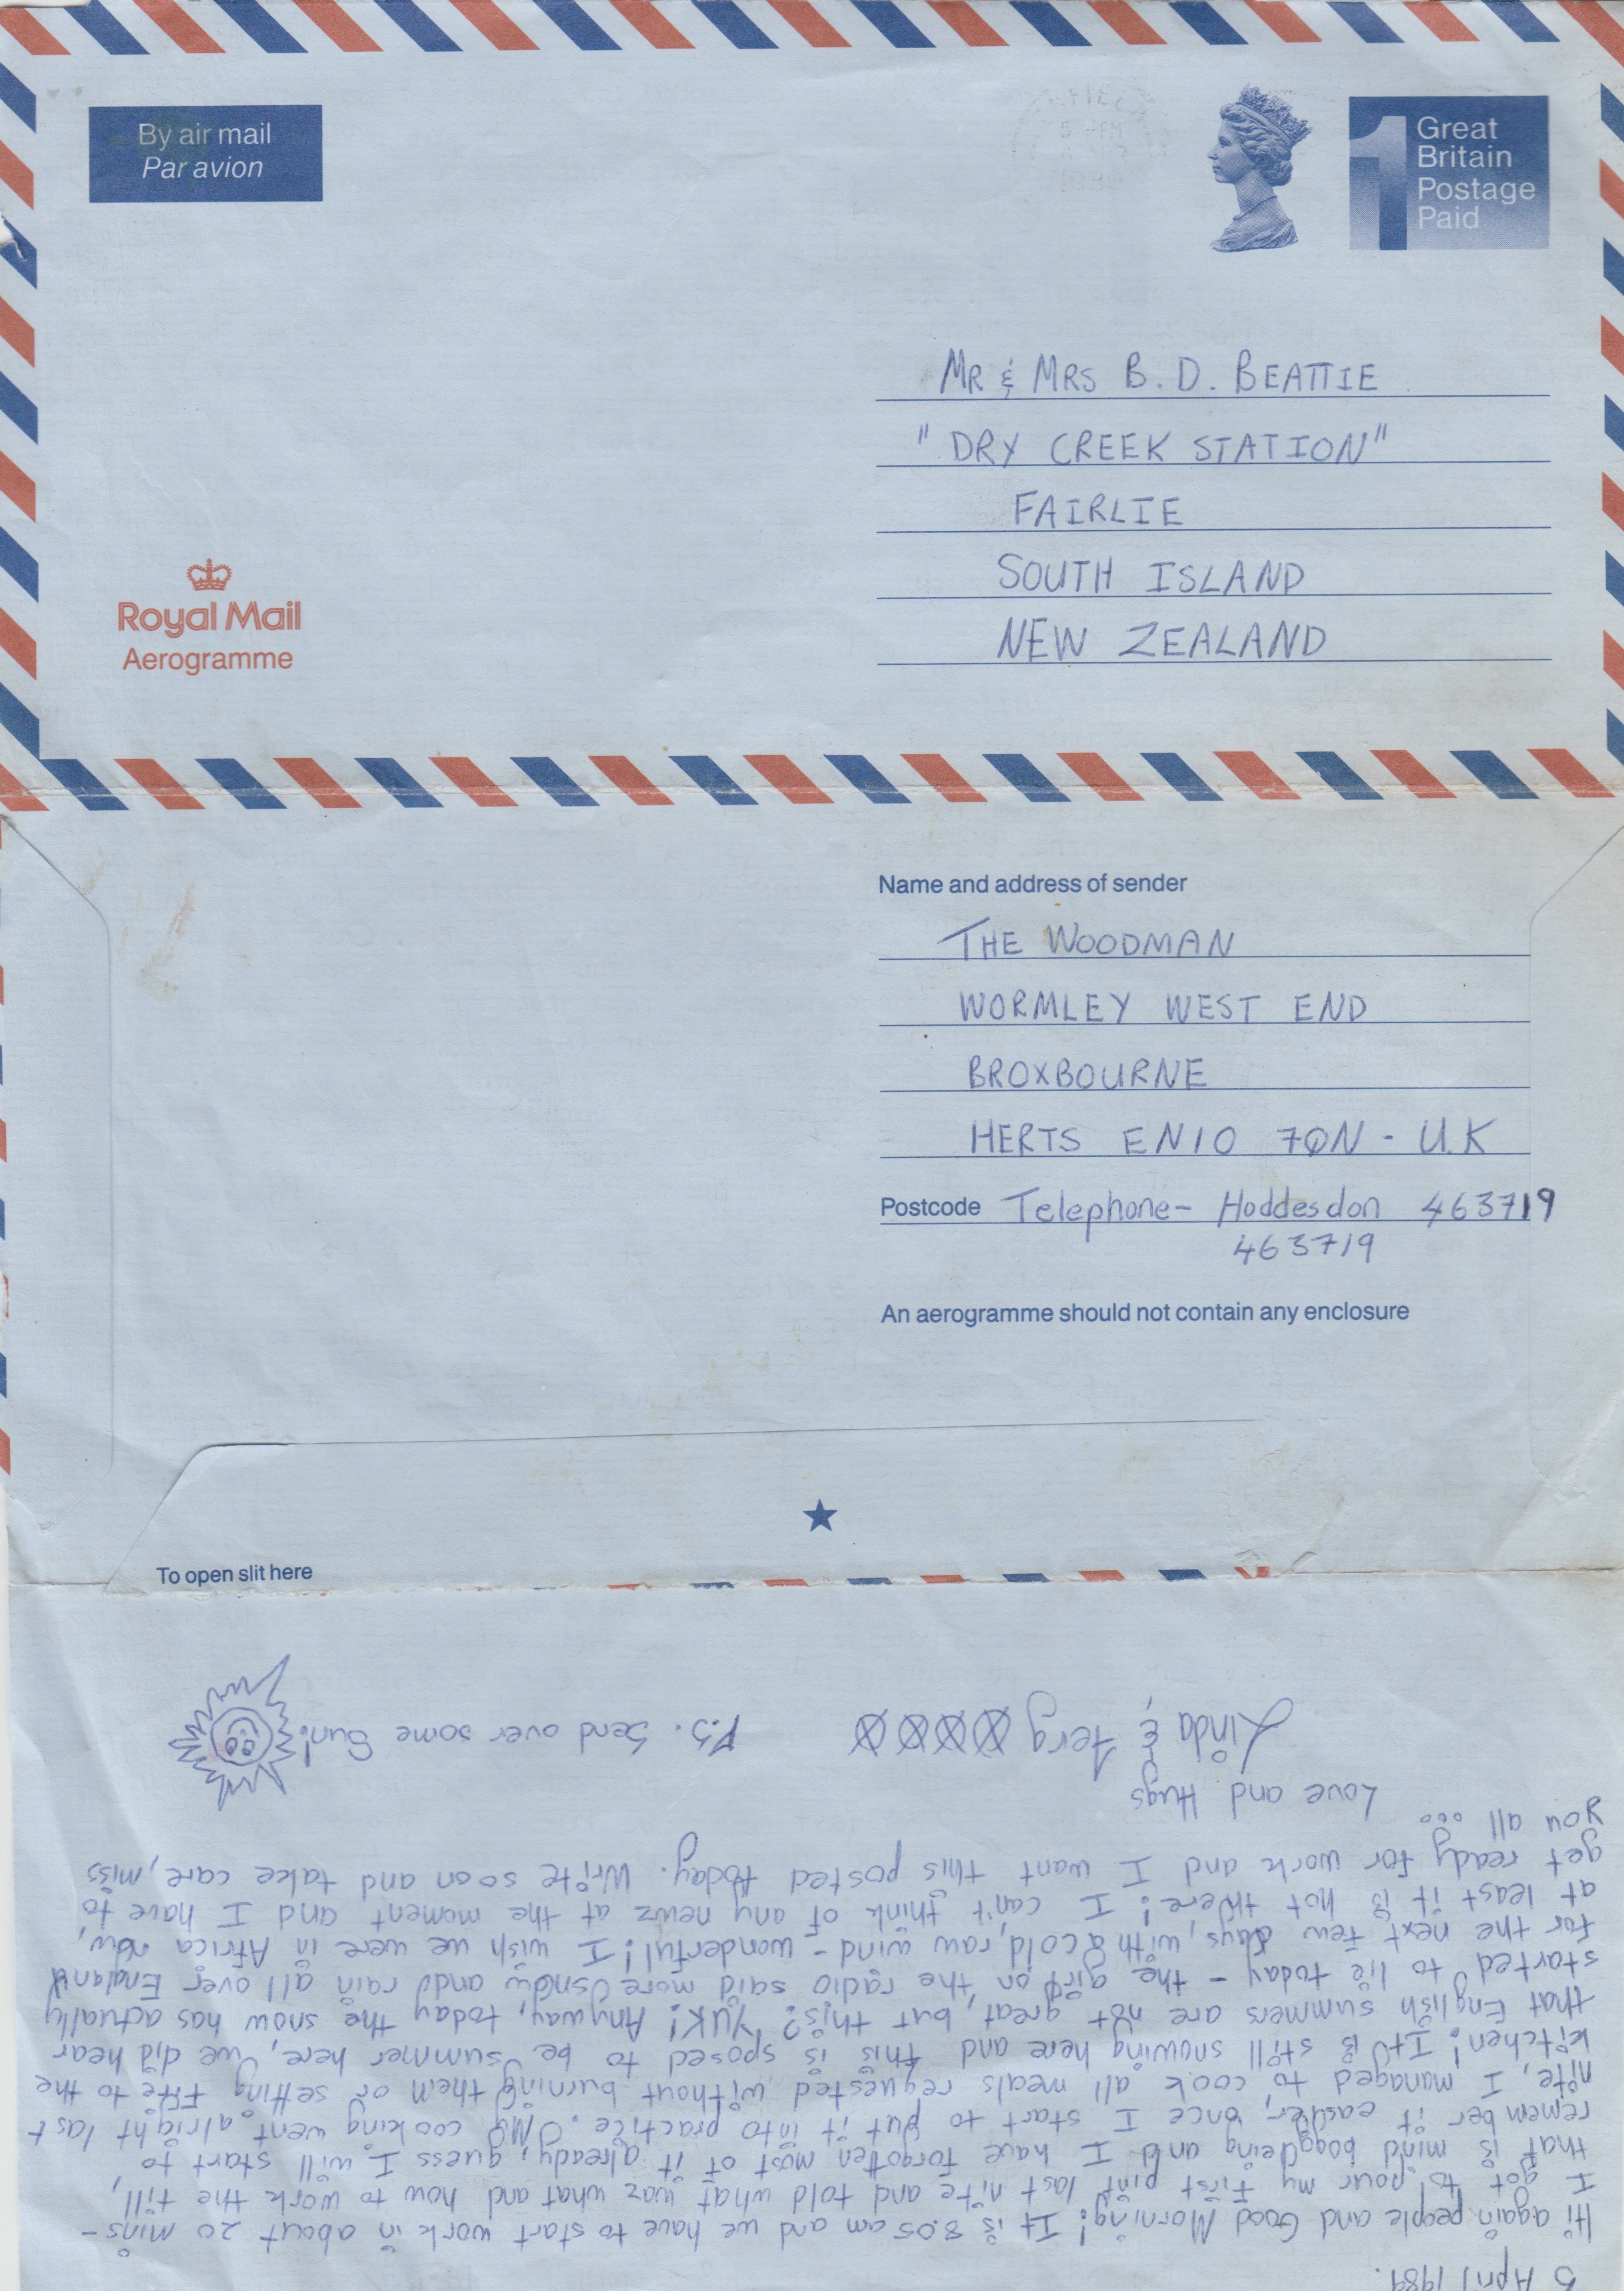 By air mail
Par avion
Great
Britain
Postage
Paid
1
MR & MRS B. D. BEATTIE
"DRY CREEK STATION"
FAIRLIE
SOUTH ISLAND
NEW ZEALAND
Royal Mail
Aerogramme
Name and address of sender
THE WOODMAN
WORMLEY WEST END
BROXBOURNE
HERTS EN10 7QN - U.K
Postcode Telephone- Hoddesdon 463719
463719
An aerogramme should not contain any enclosure
To open slit here
5 April 1989.
Hi again people and Good Morning! It is 8.05 am and we have to start work in about 20 mins-
I got to pour my first pint last nite and told what waz what and how to work the till,
that is mind boggleing and I have forgotten most of it already, guess I will start to
remember it easyier, once I start to put it into practice. My cooking went alright last
nite, I managed to cook all meals requested without burning them or setting fire to the
kitchen! It is still snowing here and this is sposed to be summer here, we did hear
that English summers are not great, but this? YUK! Anyway, today the snow has actually
started to lie today - the girl on the radio said more snow and rain all over England
for the next few days, with a cold, raw wind - wonderful! I wish we were in Africa now,
at least it is hot there! I can't think of any newz at the moment and I have to
get ready for work and I want this posted today. Write soon and take care, miss
you all ...
Love and Hugs
Linda & Ferg
P.S. Send over some Sun!